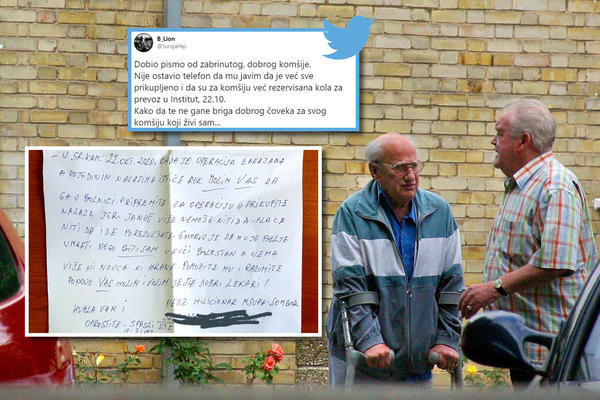 B_Lion
@JurajaHip
Dobio pismo od zabrinutog, dobrog komšije.
Nije ostavio telefon da mu javim da je već sve
prikupljeno i da su za komšiju već rezervisana kola za
prevoz u Institut, 22.10.
Kako da te ne gane briga dobrog čoveka za svog
komšiju koji živi sam...
- U SR.KAM. 22.OKT. 2020, KADA JE OPERACIJA ZAKAZANA
A POJEDINIM NALAZIMA ISTIČE ROK MOLIM VAS DA
GA U BOLNICI PRIPREMITE ZA OPERACIJU I PRIKUPITE
NALAZE JER JANOŠ VIŠE NEMOŽE NITI DA PLAĆA
NITI DA IDE PO REZULTATE. GOVORIO JE DA MU JE BOLJE
UMRETI NEGO BITI SAM U KUĆI BOLESTAN A NEMA
VIŠE NI NOVCA NI HRANE POMOZITE MU I RAZUMITE
PONOVO VAS MOLIM I VOLIM JER STE DOBRI LEKARI!
HVALA VAM I PENZ. MILICIONAR MSUP-A-SOMBOR
OPROSTITE - SPASILI STE